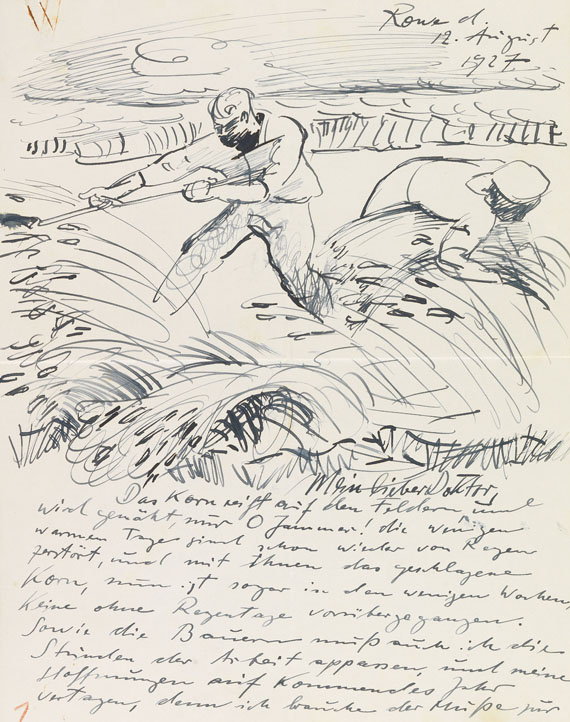 Rowe d.
12. August
1927
Mein lieber Doktor,
Das Korn reift auf den Feldern und
wird gemäht, nur O Jammer! die wenigen
warmen Tage sind schon wieder von Regen
zerstört, und mit Ihnen das geschlagene
Korn, nun ist sogar in den wenigen Wochen,
Keine ohne Regentage vorübergegangen.
Sowie die Bauern muß auch ich die
Stunden der Arbeit abpassen, und meine
Hoffnungen auf Kommendes Jahr
vertagen, denn ich brauche der Muße zur